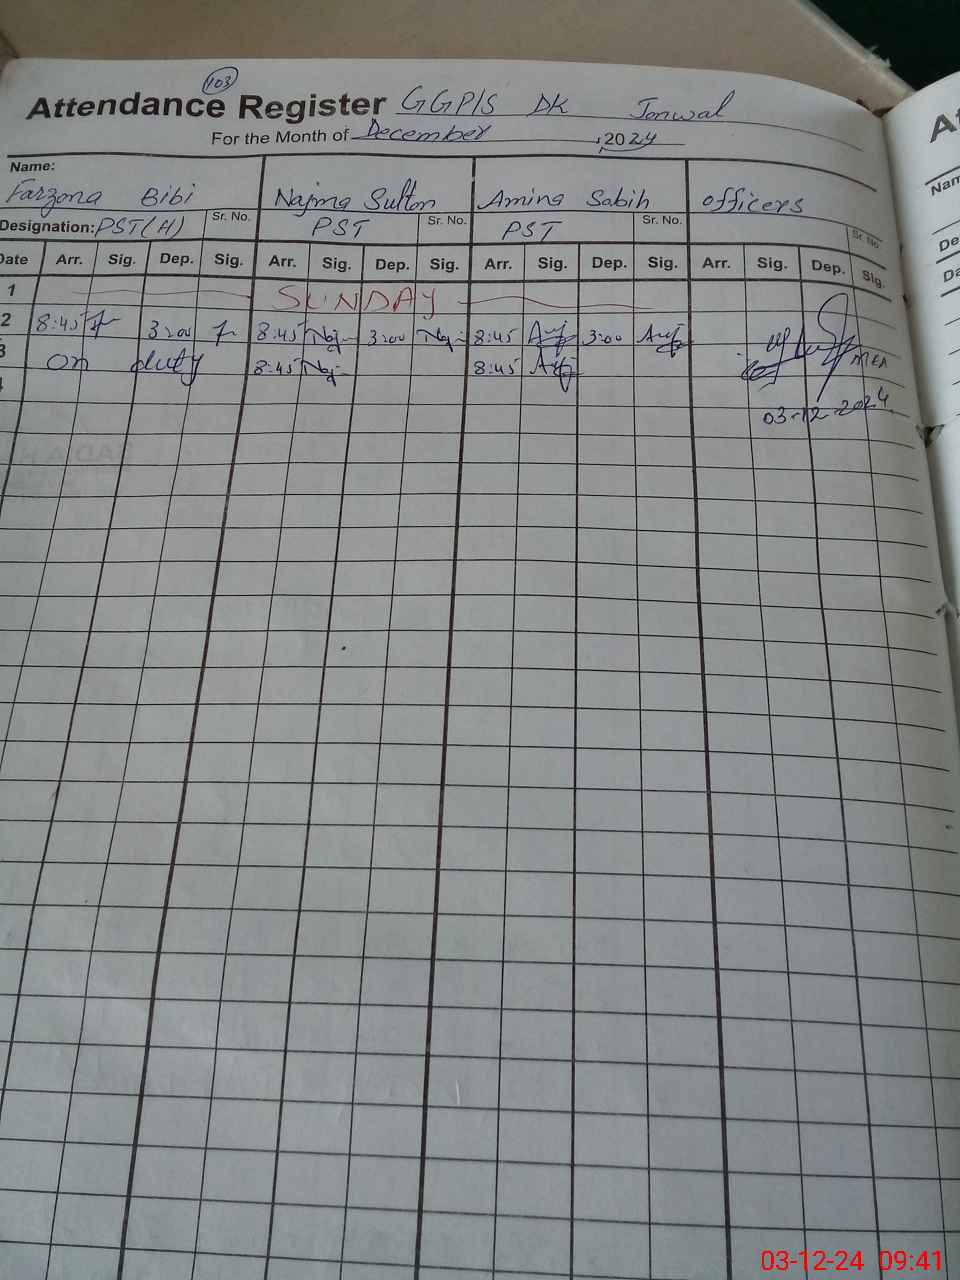 103
Attendance Register GGP/S DK Jonwal
For the Month of December, 2024
Name:
Farzona Bibi Najma Sulton Amina Sabih officers
Designation: PST(H) Sr. No. PST Sr. No. PST Sr. No. Sr. No.
Date Arr. Sig. Dep. Sig. Arr. Sig. Dep. Sig. Arr. Sig. Dep. Sig. Arr. Sig. Dep. Sig.
1 SUNDAY
2 8:45 3:00 8:45 Naj 3:00 Naj 8:45 3:00
3 on duty 8:45 Naj 8:45 MEA
03-12-2024
03-12-24 09:41